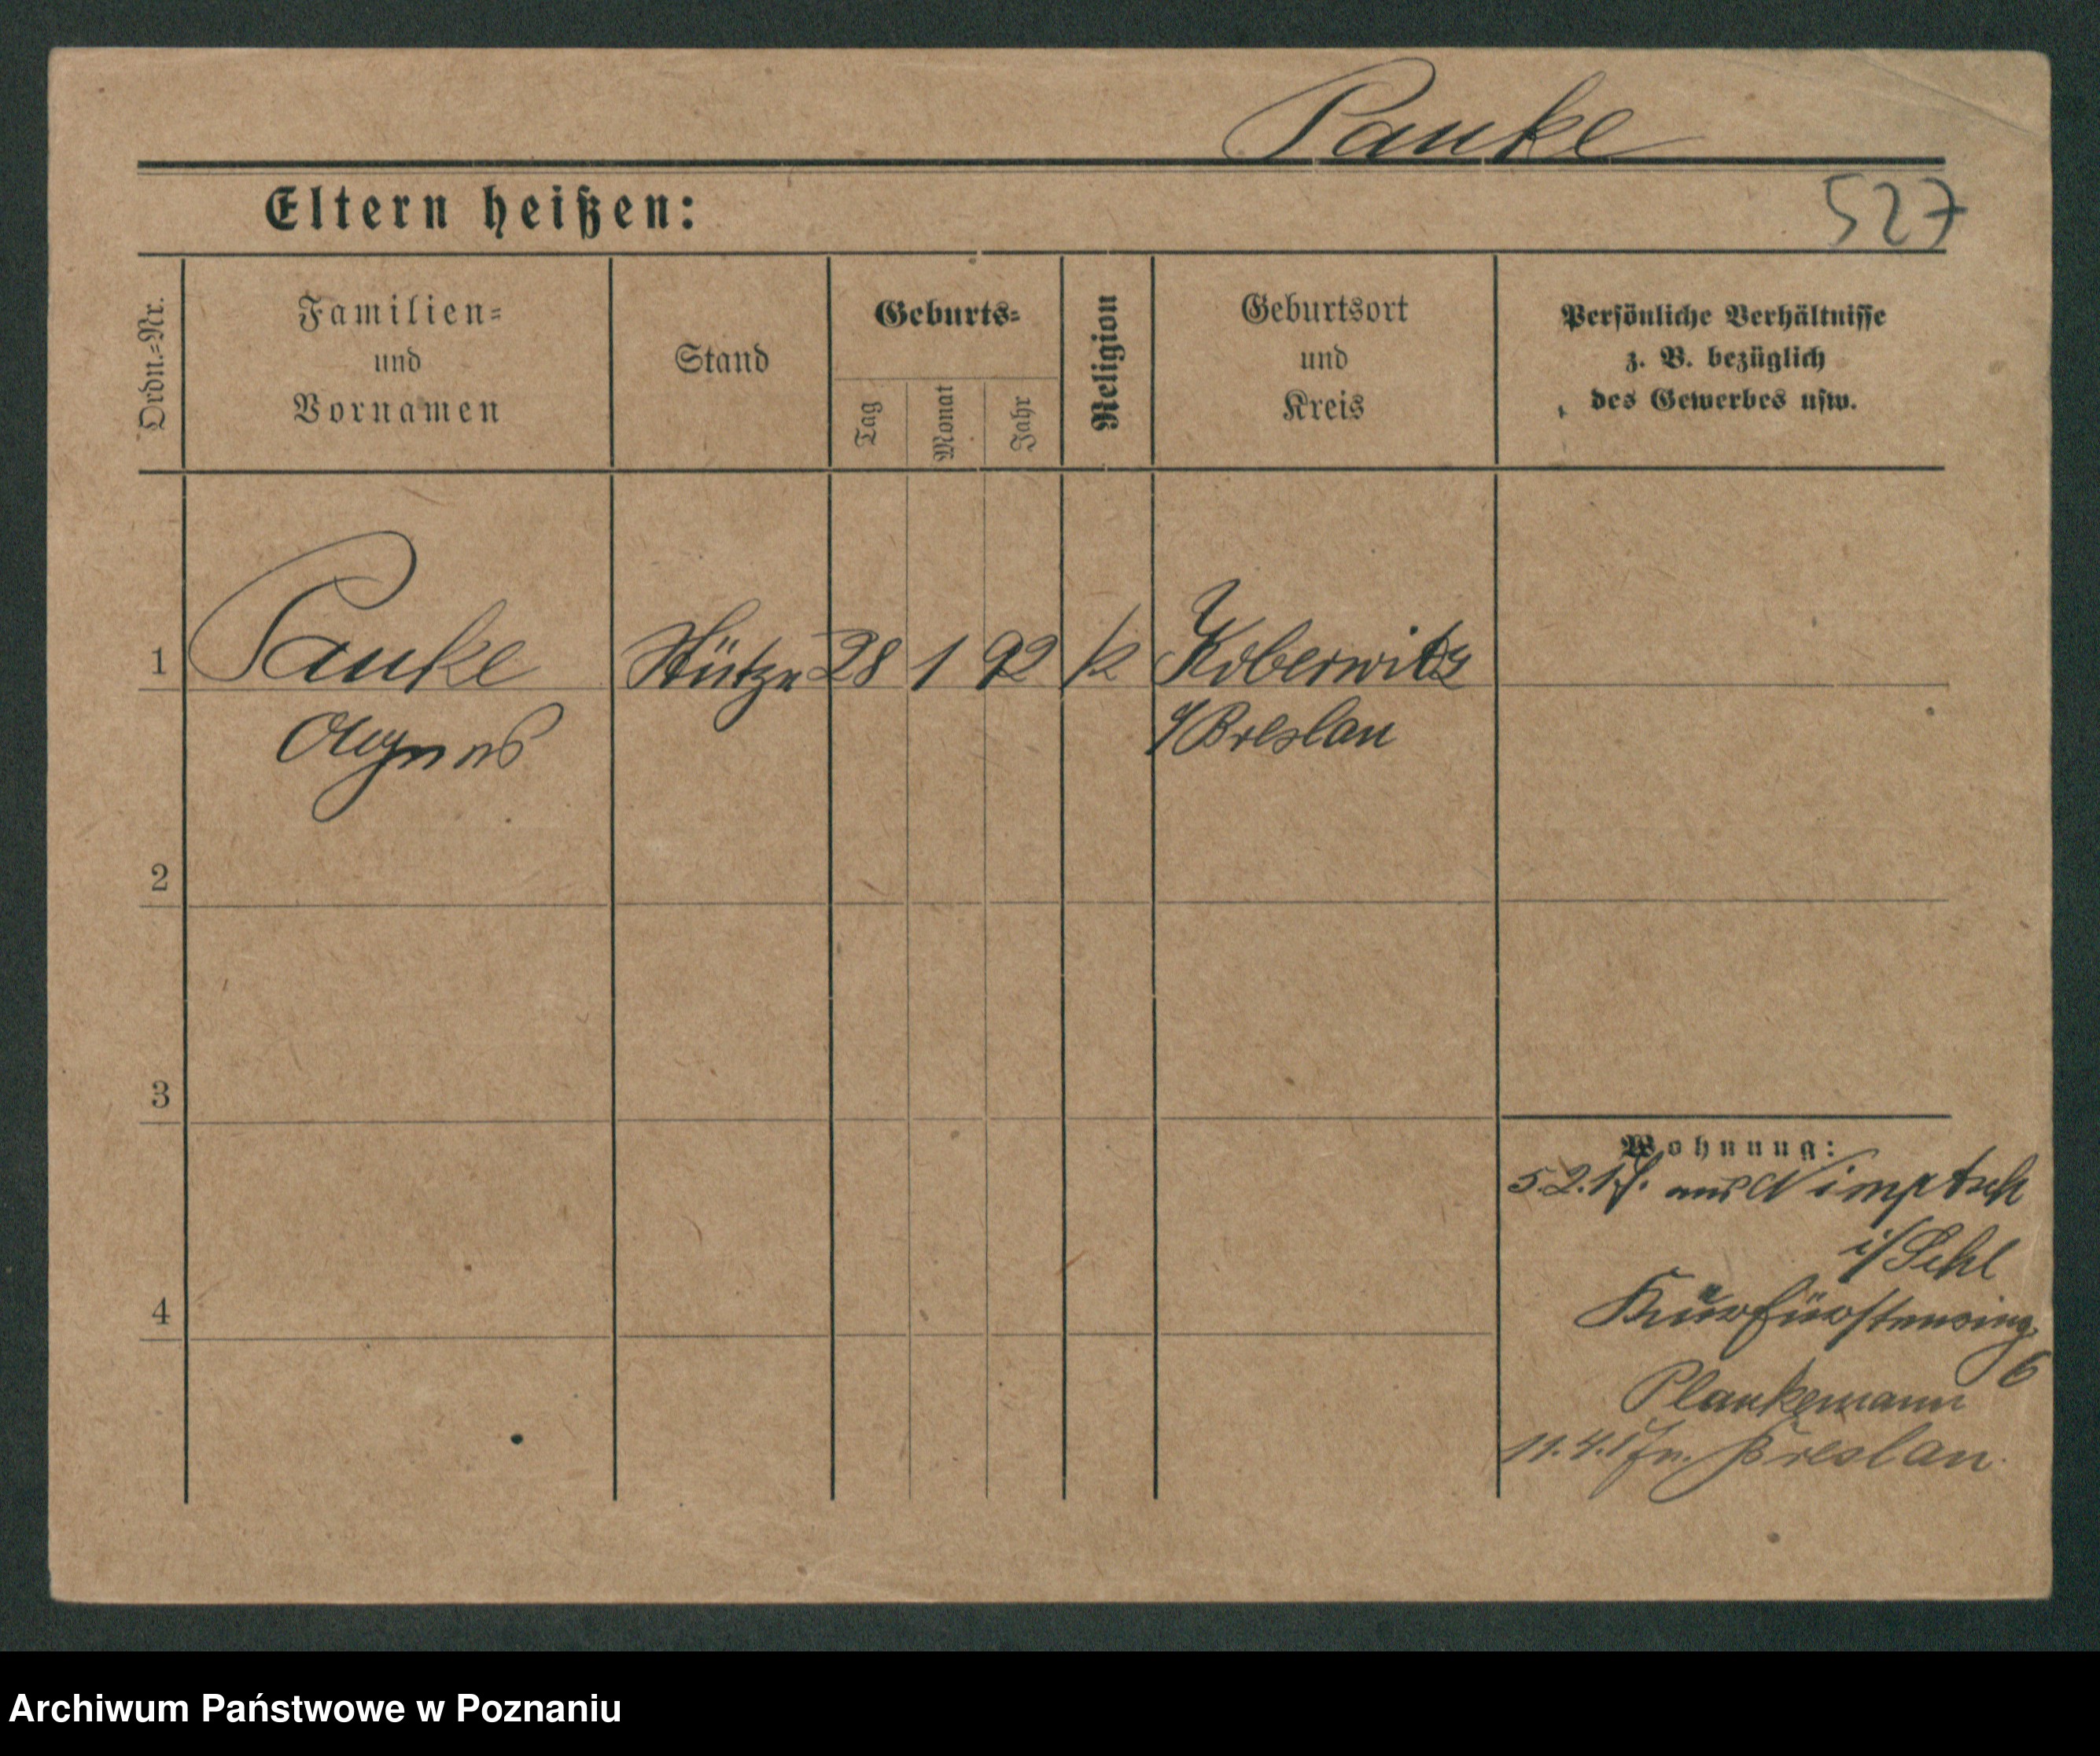 Pauke
Eltern heißen:
527
Ordn.-Nr.
Familien-
und
Vornamen
Stand
Geburts-
Tag
Monat
Jahr
Religion
Geburtsort
und
Kreis
Persönliche Verhältnisse
z. B. bezüglich
des Gewerbes usw.
1
Pauke
Stütze
28
1
92
k
Koberwitz
Agnes
Breslau
2
3
4
Wohnung:
5.2. aus Nimptsch
i/Schl
Kurfürstenring
6
Plankemann
11.4. Breslau.
Archiwum Państwowe w Poznaniu